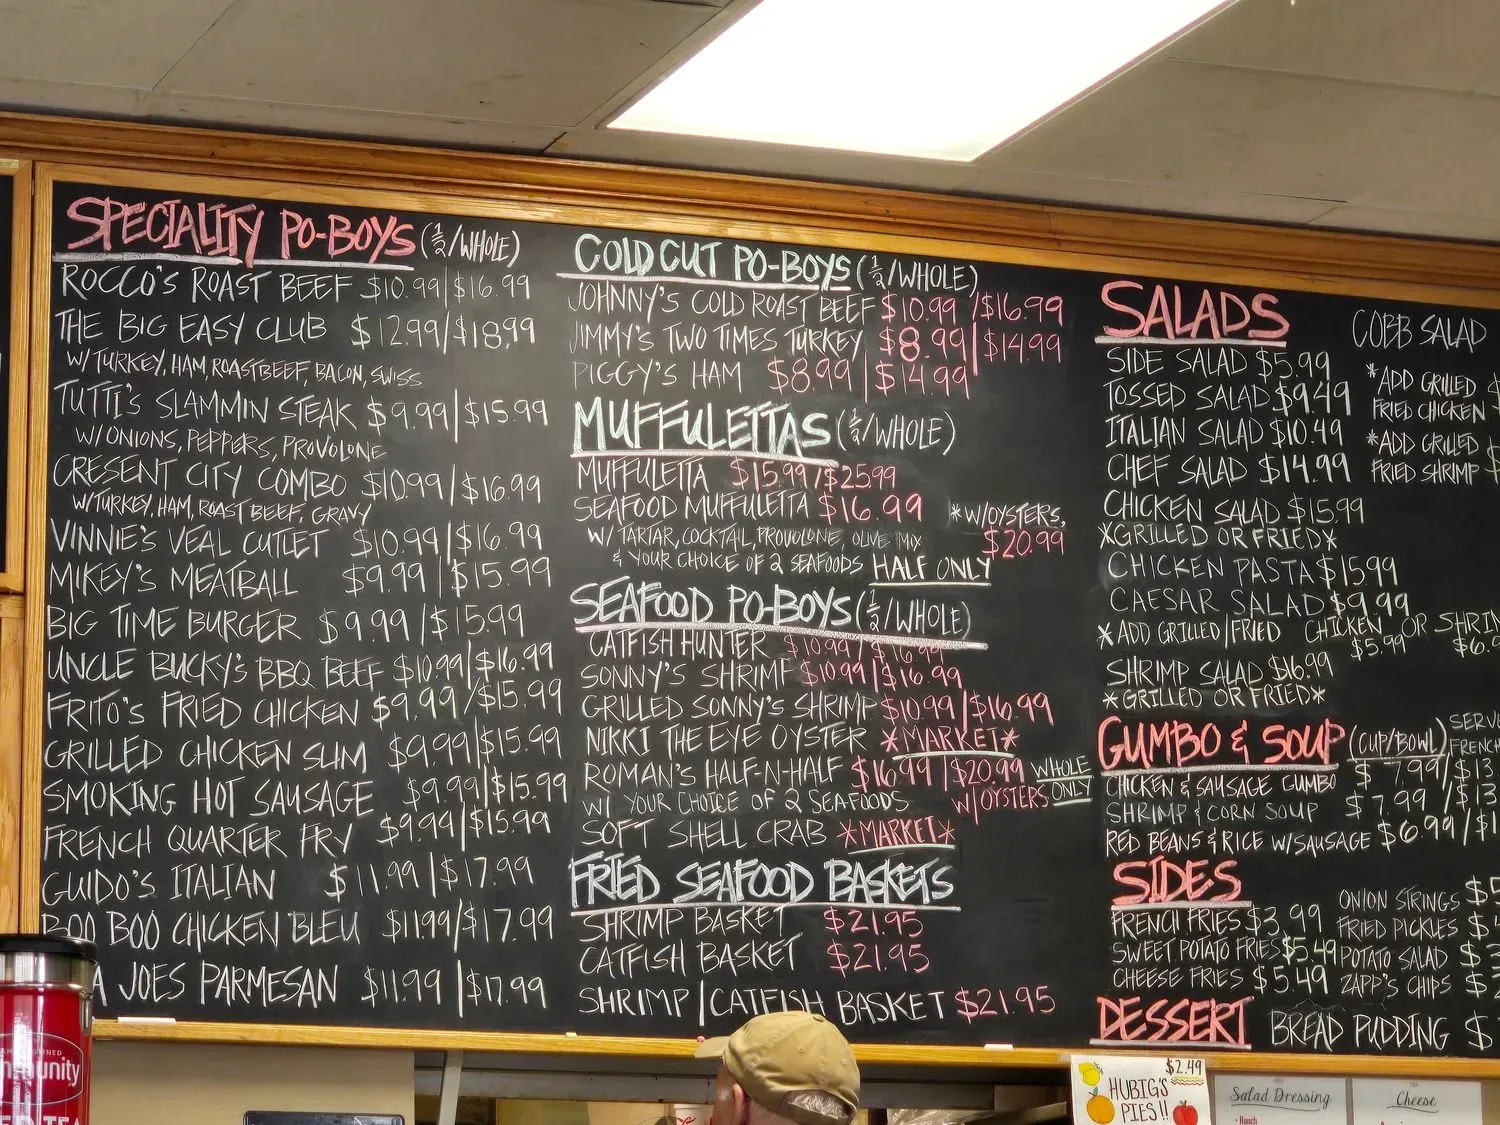 SPECIALITY PO-BOYS (½/WHOLE)
ROCCO'S ROAST BEEF $10.99|$16.99
THE BIG EASY CLUB $12.99/$18,99
W/ TURKEY, HAM, ROAST BEEF, BACON, SWISS
TUTTI'S SLAMMIN STEAK $9.99|$15.99
W/ ONIONS, PEPPERS, PROVOLONE
CRESENT CITY COMBO $10.99/$16.99
W/TURKEY, HAM, ROAST BEEF, GRAVY
VINNIE'S VEAL CUTLET $10.99/$16.99
MIKEY'S MEATBALL $9.99|$15.99
BIG TIME BURGER $9.99/$15.99
UNCLE BUCKY'S BBQ BEEF $10.99/$16.99
FRITO'S FRIED CHICKEN $9.99/$15.99
GRILLED CHICKEN SLIM $9.99|$15.99
SMOKING HOT SAUSAGE $9.99/$15.99
FRENCH QUARTER FRY $9.99/$15.99
GUIDO'S ITALIAN $11.99|$17.99
BOO BOO CHICKEN BLEU $11.99/$17.99
A JOES PARMESAN $11.99|$17.99
COLD CUT PO-BOYS (½/WHOLE)
JOHNNY'S COLD ROAST BEEF $10.99/$16.99
JIMMY'S TWO TIMES TURKEY $8.99|$14.99
PIGGY'S HAM $8.99|$14.99
MUFFULETTAS (½/WHOLE)
MUFFULETTA $15.99/$25.99
SEAFOOD MUFFULETTA $16.99 *W/OYSTERS,
$20.99
W/ TARTAR, COCKTAIL, PROVOLONE, OLIVE MIX
& YOUR CHOICE OF 2 SEAFOODS HALF ONLY
SEAFOOD PO-BOYS (½/WHOLE)
CATFISH HUNTER $10.99/$16.99
SONNY'S SHRIMP $10.99/$16.99
GRILLED SONNY'S SHRIMP $10.99|$16.99
NIKKI THE EYE OYSTER *MARKET*
ROMAN'S HALF-N-HALF $16.99|$20.99 WHOLE
W/ YOUR CHOICE OF 2 SEAFOODS W/OYSTERS ONLY
SOFT SHELL CRAB *MARKET*
FRIED SEAFOOD BASKETS
SHRIMP BASKET $21.95
CATFISH BASKET $21.95
SHRIMP/CATFISH BASKET $21.95
SALADS
SIDE SALAD $5.99
TOSSED SALAD $9.49
ITALIAN SALAD $10.49
CHEF SALAD $14.99
CHICKEN SALAD $15.99
*GRILLED OR FRIED*
CHICKEN PASTA $15.99
CAESAR SALAD $9.99
*ADD GRILLED/FRIED CHICKEN OR SHRIM
$5.99 $6.9
SHRIMP SALAD $16.99
*GRILLED OR FRIED*
COBB SALAD
*ADD GRILLED
FRIED CHICKEN $
*ADD GRILLED
FRIED SHRIMP $
GUMBO & SOUP (CUP/BOWL) SERV
FRENCH
CHICKEN & SAUSAGE GUMBO $7.99/$13
SHRIMP & CORN SOUP $7.99/$13
RED BEANS & RICE W/SAUSAGE $6.99/$1
SIDES
FRENCH FRIES $3.99
SWEET POTATO FRIES $5.49
CHEESE FRIES $5.49
ONION STRINGS $5
FRIED PICKLES $
POTATO SALAD $3
ZAPP'S CHIPS $
DESSERT BREAD PUDDING $
$2.49
HUBIG'S
PIES!!
Salad Dressing
Ranch
Cheese